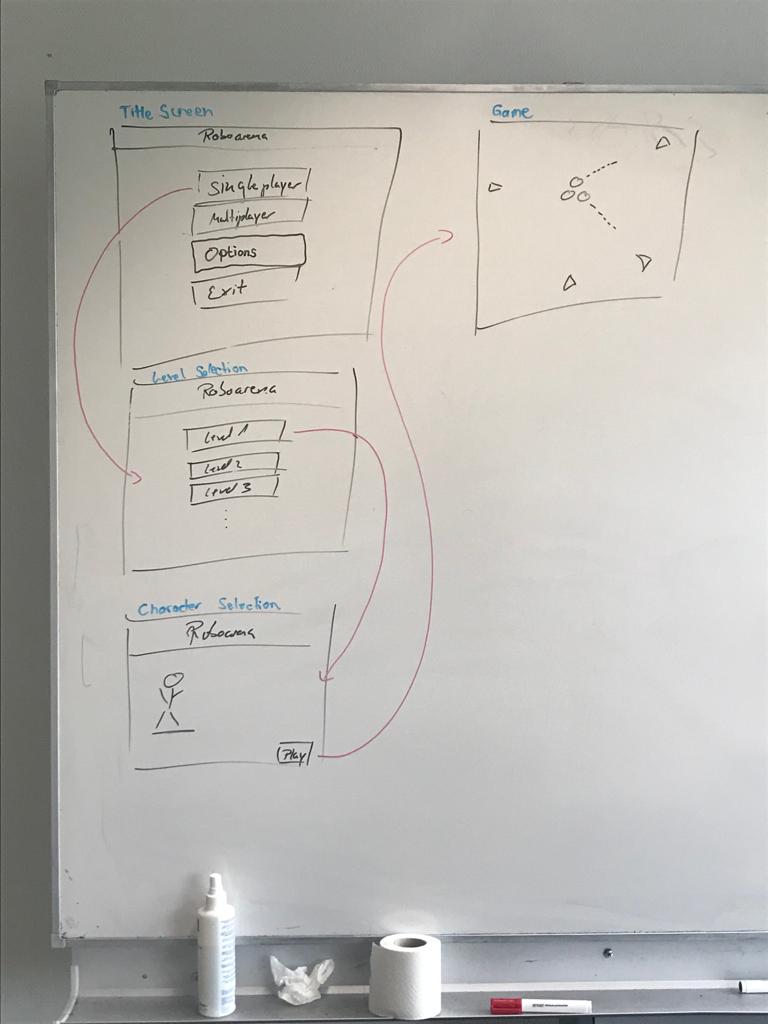 Title Screen
Roboarena
Singleplayer
Multiplayer
Options
Exit
Level Selection
Roboarena
Level 1
Level 2
Level 3
Character Selection
Roboarena
Play
Game